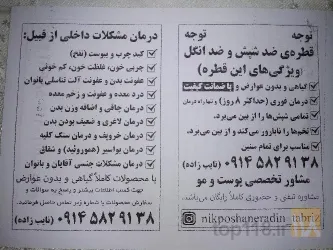 توجه توجه
قطره‌ی ضد شپش و ضد انگل
(ویژگی‌های این قطره)
گیاهی و بدون عوارض و با ضمانت کیفیت
درمان فوری (حداکثر ۸ روز) و تنها راه درمان
تمامی شپش‌ها را از بین می‌برد.
تخم‌ها را نابارور می‌کند و از بین می‌برد.
مناسب برای تمام سنین
۰۹۱۴ ۵۸۲ ۹۱ ۳۸ (نایب زاده)
مشاور تخصصی پوست و مو
مشاوره تلفنی و حضوری کاملاً رایگان می‌باشد.
nikposhaneradin_tabriz
درمان مشکلات داخلی از قبیل:
کبد چرب و یبوست (نفخ)
چربی خون، غلظت خون، کم خونی
عفونت بدن و عفونت آلت تناسلی بانوان
درد معده و عفونت و زخم معده
درمان چاقی و اضافه وزن بدن
درمان لاغری و ضعیف بودن بدن
درمان خروپف و درمان سنگ کلیه
درمان بواسیر (هموروئید) و شقاق
درمان مشکلات جنسی آقایان و بانوان
با محصولات کاملاً گیاهی و بدون عوارض
جهت کسب اطلاعات بیشتر و پاسخ به سوالات و
سفارش محصولات با شماره زیر تماس حاصل فرمائید.
۰۹۱۴ ۵۸۲ ۹۱ ۳۸ (نایب زاده)
top118.ir